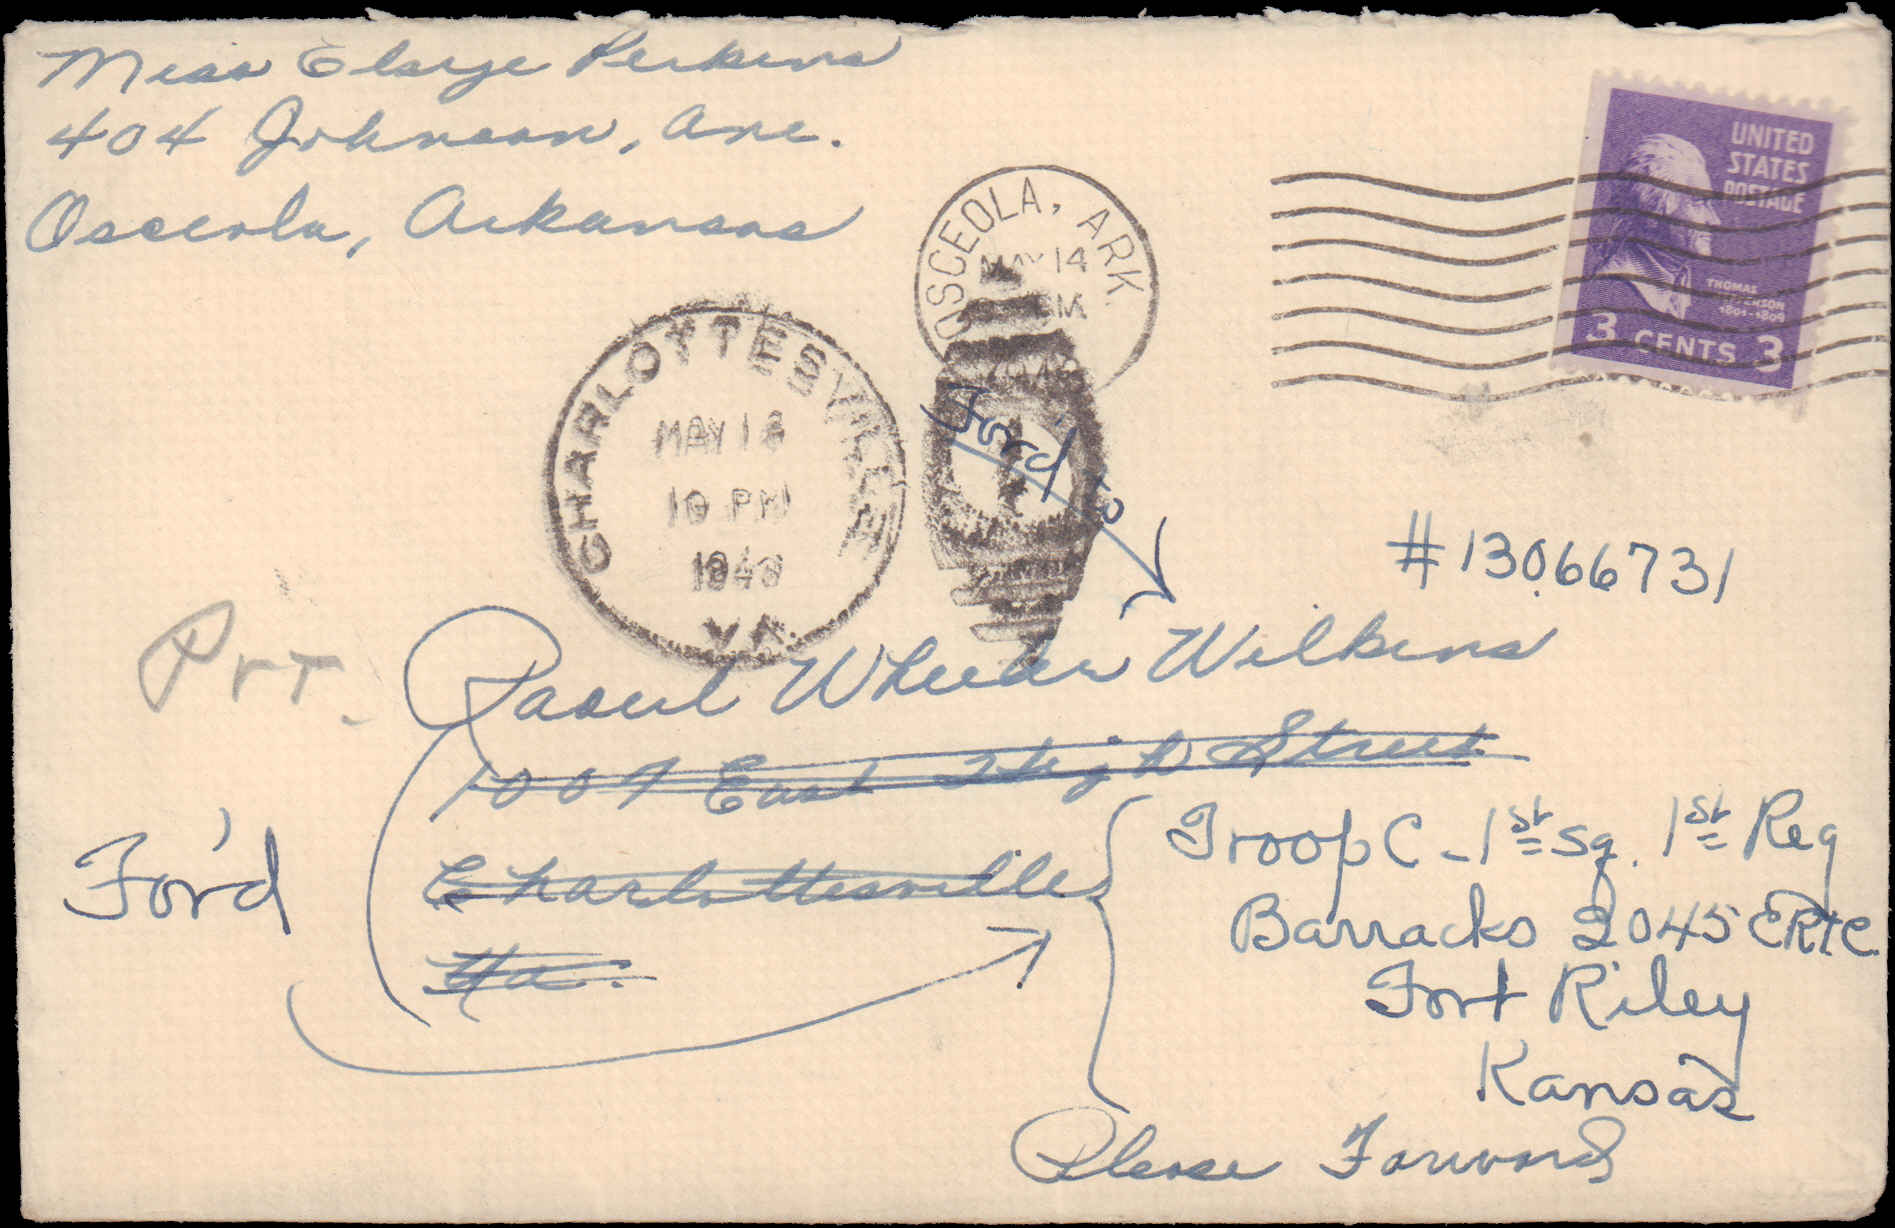 Miss Elsye Perkins
404 Johnson, Ave.
Osceola, Arkansas
OSCEOLA, ARK.
MAY 14
1943
UNITED
STATES
POSTAGE
THOMAS
JEFFERSON
1801-1809
3 CENTS 3
CHARLOTTESVILLE
MAY 18
10 PM
1943
VA.
For'd to
#13066731
Pvt.
Raoul Wheeler Wilkins
1007 East High Street
Charlottesville
Va.
For'd
Troop C - 1st Sq. 1st Reg
Barracks 2045 CRTC
Fort Riley
Kansas
Please Forward